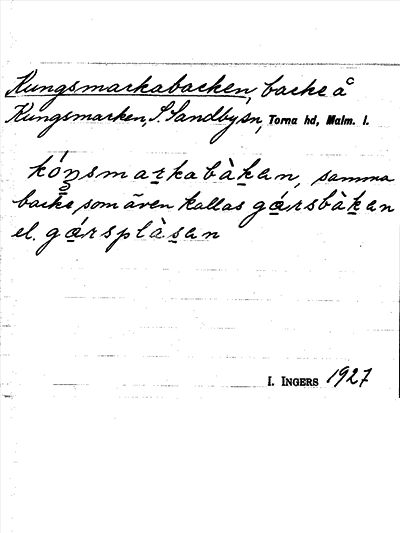 Kungsmarkabacken, backe å
Kungsmarken, S. Sandby sn, Torna hd, Malm. l.
kóŋsmarkabàkan, samma
backe som även kallas gårsbàkan
el. gårsplàsan
I. INGERS 1927